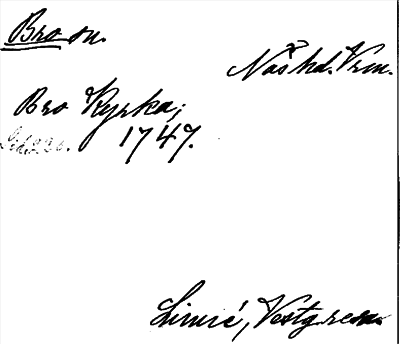 Bro sn.
Näshd. Vrm.
Bro Kyrka;
1747.
Sid. 226.
Linné, Vestg. resa